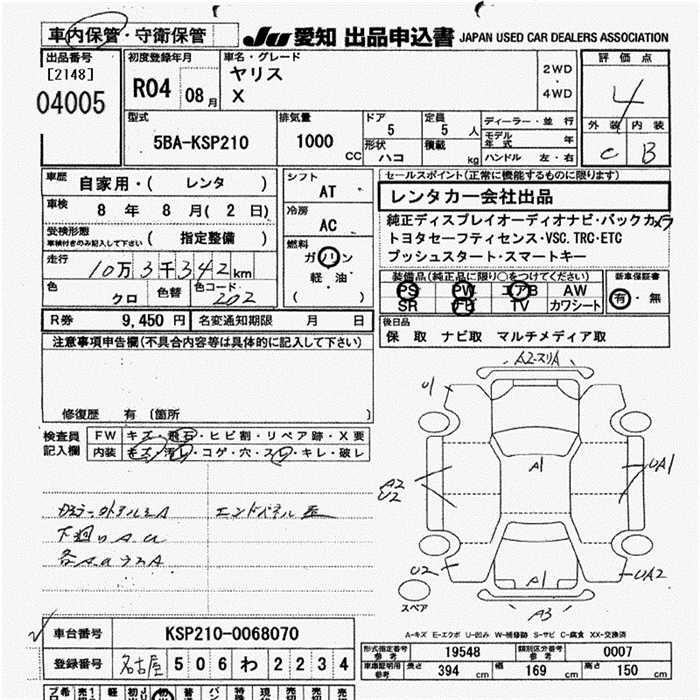 車内保管・守衛保管
JU 愛知 出品申込書 JAPAN USED CAR DEALERS ASSOCIATION
出品番号
[2148]
04005
初度登録年月
R04 08月
車名・グレード
ヤリス
X
2WD
・
4WD
評価点
4
外装 内装
C B
型式
5BA-KSP210
排気量
1000 CC
ドア
5
定員
5 人
形状
ハコ
積載
kg
ディーラー・並行
モデル年式 年
ハンドル 左・右
車歴
自家用・( レンタ )
車検
8 年 8 月( 2 日)
受検形態
車検付きのみ記入して下さい
( 指定整備 )
走行
10万3千342km
色
クロ
色替
色コード
202
シフト
AT
冷房
AC
燃料
ガソリン
軽・油
セールスポイント(正常に機能するものに限ります)
レンタカー会社出品
純正ディスプレイオーディオナビ・バックカメラ
トヨタセーフティセンス・VSC.TRC・ETC
プッシュスタート・スマートキー
装備品(純正品に限り〇をつけてください)
PS PW エアB AW
SR ナビ TV カワシート
新車保証書
有・無
R券 9,450 円
名変通知期限 月 日
後日品
保 取 ナビ取 マルチメディア取
注意事項申告欄(不具合内容等は具体的に記入して下さい)
修復歴 有 〔箇所 〕
検査員記入欄
FW キズ・飛石・ヒビ割・リペア跡・X要
内装 キズ・汚レ・コゲ・穴・スレ・キレ・破レ
A2
U1
A1
UA1
A2
U2
U2
A1
UA2
A3
スペア
エンドパネル
下廻り
A-キズ E-エクボ U-凹み W-補修跡 S-サビ C-腐食 XX-交換済
車台番号
KSP210-0068070
登録番号
名古屋 506 わ 2234
形式指定番号 参考
19548
類別区分番号 参考
0007
車庫証明用 参考
長さ 394 cm
幅 169 cm
高さ 150 cm